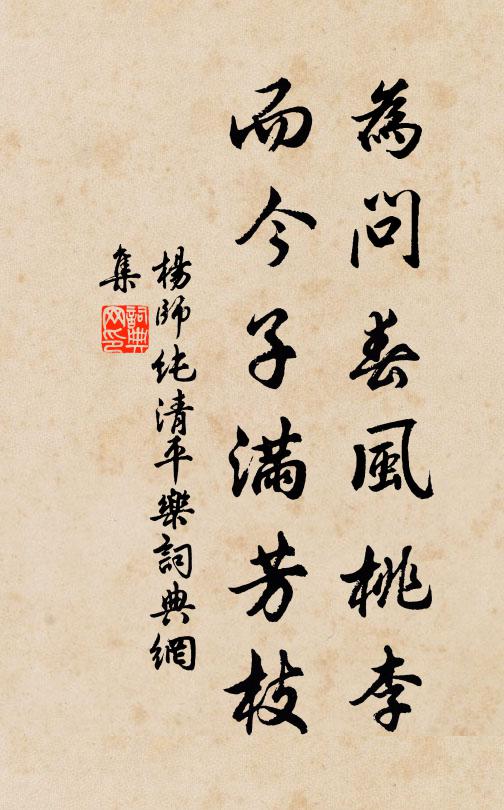 為問春風桃李
而今子滿芳枝
楊師純清平樂詞典網
集
詞典
网印